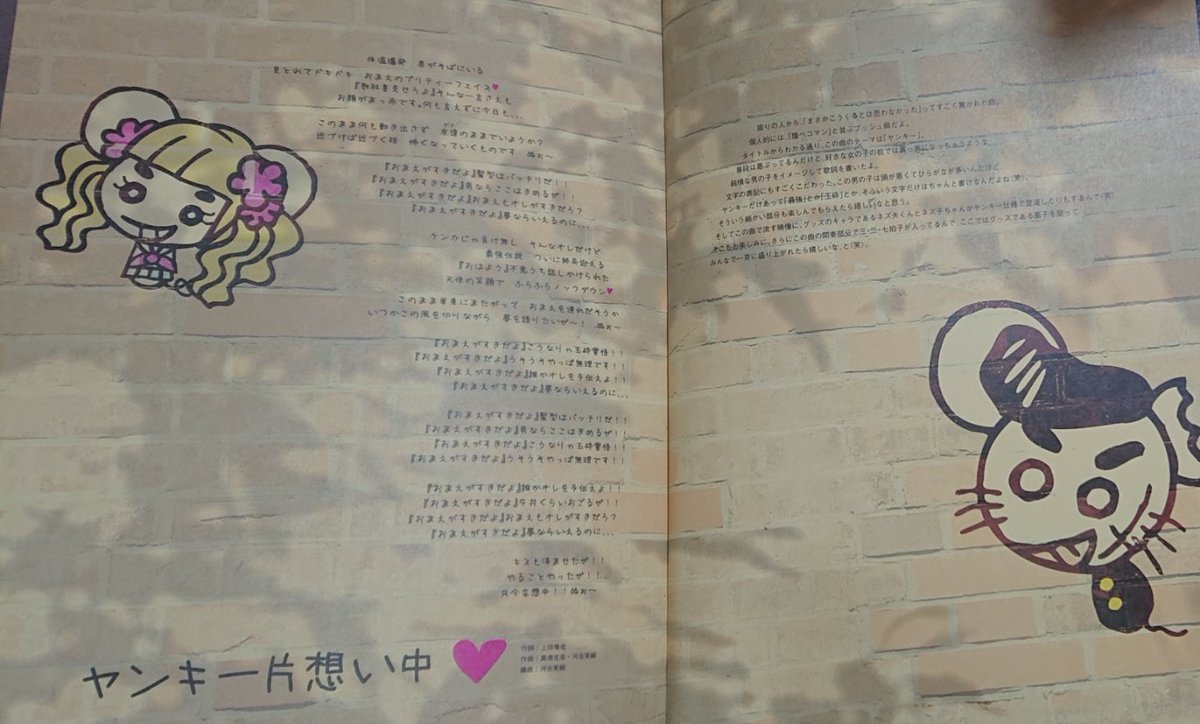 体温爆発　君がそばにいる
見とれてドキドキ　おまえのプリティーフェイス♥
『教科書見せろよ』そんな一言さえも
お顔がまっ赤です。何も言えずに今日も...
このまま何も動き出さず　友達のままでいようか?
近づけば近づく程　怖くなっていくものです　ぬぉ〜
『おまえがすきだよ』髪型はバッチリだ!!
『おまえがすきだよ』男ならここはきめるぜ!!
『おまえがすきだよ』おまえもオレがすきだろ?
『おまえがすきだよ』夢ならいえるのに...
ケンカじゃ負け無し　そんなオレだけど
最強伝説　ついに終焉迎える
『おはよう』不意うち話しかけられた
天使の笑顔で　ふらふらノックダウン♥
このまま単車にまたがって　おまえを連れだそうか
いつかこの風を切りながら　夢を語りたいぜ〜!　ぬぉ〜
『おまえがすきだよ』こうなりゃ玉砕覚悟!!
『おまえがすきだよ』うそうそやっぱ無理です!!
『おまえがすきだよ』誰かオレを手伝えよ!!
『おまえがすきだよ』夢ならいえるのに...
『おまえがすきだよ』髪型はバッチリだ!!
『おまえがすきだよ』男ならここはきめるぜ!!
『おまえがすきだよ』こうなりゃ玉砕覚悟!!
『おまえがすきだよ』うそうそやっぱ無理です!!
『おまえがすきだよ』誰かオレを手伝えよ!!
『おまえがすきだよ』牛丼くらいおごるぜ!!
『おまえがすきだよ』おまえもオレがすきだろ?
『おまえがすきだよ』夢ならいえるのに...
キスも済ませたぜ!!
やることやったぜ!!
只今妄想中!!ぬぉ〜
ヤンキー片想い中
作詞:上田竜也
作曲:・河合英嗣
編曲:河合英嗣
周りの人から、「まさかこうくるとは思わなかった」ってすごく驚かれた曲。
個人的には、「腹ペコマン」と並ぶプッシュ曲だよ。
タイトルからわかる通り、この曲のテーマは「ヤンキー」。
普段は悪ぶってるんだけど、好きな女の子の前では真っ赤になっちゃうような
純情な男の子をイメージして歌詞を書いたよ。
文字の表記にもすごくこだわった。この男の子は頭が悪くてひらがなが多いんだけど、
ヤンキーだけあって「最強」とか「玉砕」とか、そういう文字だけはちゃんと書けるんだよね(笑)。
そういう細かい部分も楽しんでもらえたら嬉しいなと思う。
そしてこの曲で流す映像に、グッズのキャラであるネズ夫くんとネズ子ちゃんがヤンキー仕様で登場したりもするんで(笑)
そこもお楽しみに。さらにこの曲の間奏部分で三・三・七拍子が入ってるんで、ここではグッズである扇子を使って
みんなで一斉に盛り上がれたら嬉しいな、と(笑)。